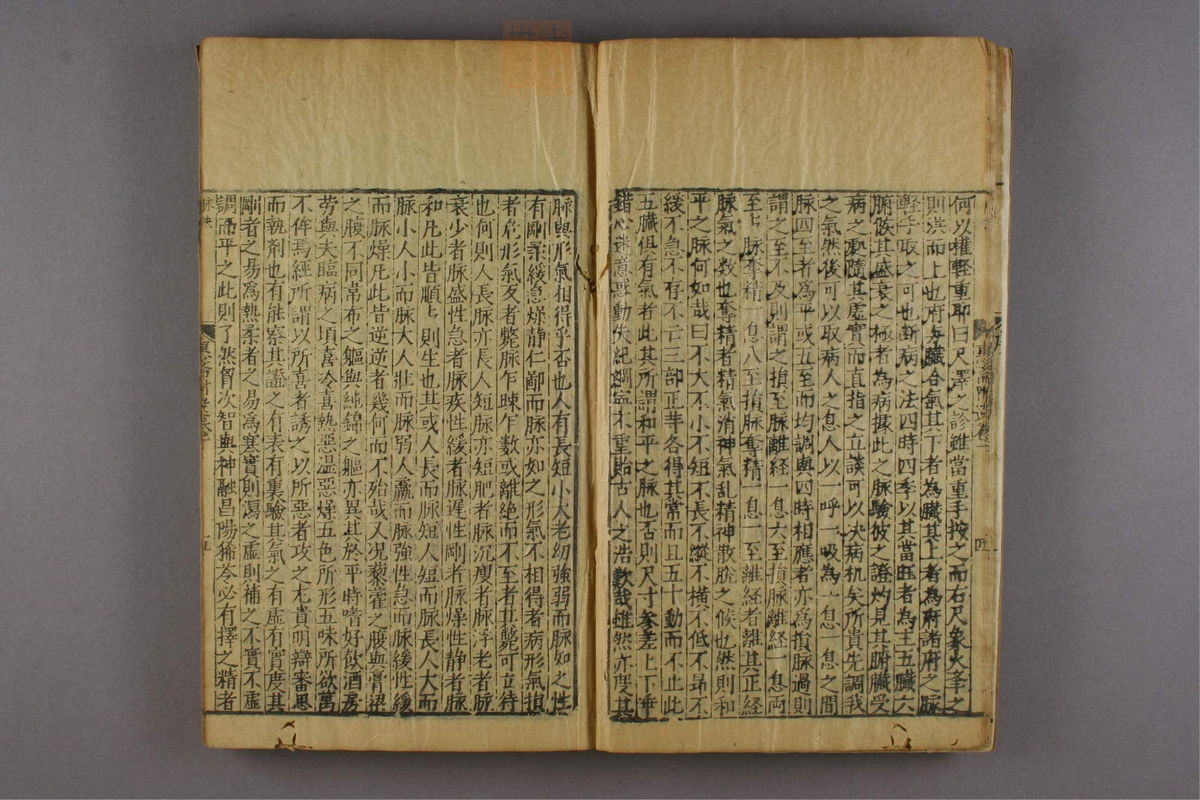 何以權輕重耶曰尺澤之診雖當重手按之而右尺象火夆之
則洪而上也府与臟合氣其下者為臟其上者為府諸府之脉
輕手取之可也斷病之法四時四季以其當旺者為主五臟六
腑候其盛衰之極者為病據此之脉驗彼之證灼見其腑臟受
病之處隨其虛實而直指之立談可以决病机矣所貴先調我
之氣然後可以取病人之息人以一呼一吸為一息一息之間
脉四至者爲平或五至而均調與四時相應者亦爲損脉過則
謂之至不及則謂之損至脉離經一息六至損脉離經一息兩
至至脉奪精一息八至損脉奪精一息一至離經者離其正経
脉氣之数也奪精者精氣消神氣乱精神散脫之候也然則和
平之脉何如哉曰不大不小不短不長不縱不橫不低不昻不
緩不急不存不亡三部正等各得其常而且五十動而不止此
五臓俱有氣者此其所謂和平之脉也否則尺寸參差上下乖
錯心迷意惑動失紀綱寧不重貽古人之浩歎哉雖然亦度其
脉與形氣相得乎否也人有長短小大老幼強弱而脉如之性
有剛柔緩急燥静仁鄙而脉亦如之形氣不相得者病形氣損
者危形氣反者斃脉乍踈乍數或離絶而不至者其斃可立待
也何則人長脉亦長人短脉亦短肥者脉沉瘦者脉浮老者脉
衰少者脉盛性急者脉疾性緩者脉遲性剛者脉燥性静者脉
和凡此皆順順則生也其或人長而脉短人短而脉長人大而
脉小人小而脉大人壯而脉弱人羸而脉強性急而脉緩性緩
而脉燥凡此皆逆逆者幾何而不殆哉又况藜藿之腹與膏粱
之腹不同常布之軀與純錦之軀亦異其於平時嗜好飲酒房
勞與夫臨病之頃喜冷喜熱惡温惡燥五色所形五味所欲萬
不侔焉經所謂以所喜者誘之以所惡者攻之尤貴明辯審思
而執剤也有能察其謐之有表有裏驗其氣之有虛有實度其
剛者之易爲熱柔者之易爲寒實則瀉之虛則補之不實不虛
調而平之此則了然胷次智與神融昌陽豨苓必有擇之精者